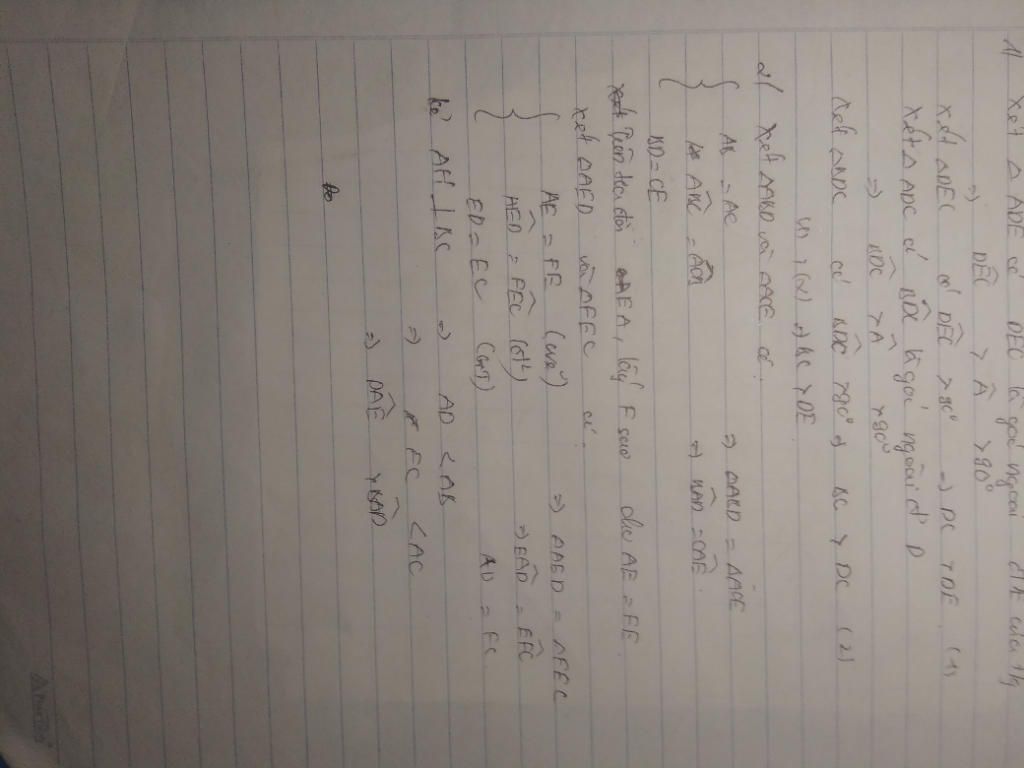 1/ Xét △ ADE có DEC là góc ngoài
=> DÊC > Â > 90°
Xét △DEC có DÊC > 90° => DC > DE (1)
Xét △ ADC có BDC là góc ngoài ở D
=> BDC > Â > 90°
Xét △BDC có BDC > 90° => BC > DC (2)
(1), (2) => BC > DE
2/ Xét △ABD và △ACE có.
AB = AC => △ABD = △ACE
ABC = ACB => BAD = CAE
BD = CE
Trên tia đối EA, lấy F sao cho AE = FE.
Xét △AED và △FEC có.
AE = FE => △AED = △FEC
AED = FEC (đ²) => EAD = EFC
ED = EC (gt) AD = FC
Kẻ AH ⊥ BC => AD < AB
=> FC < AC
=> DAE > BAD